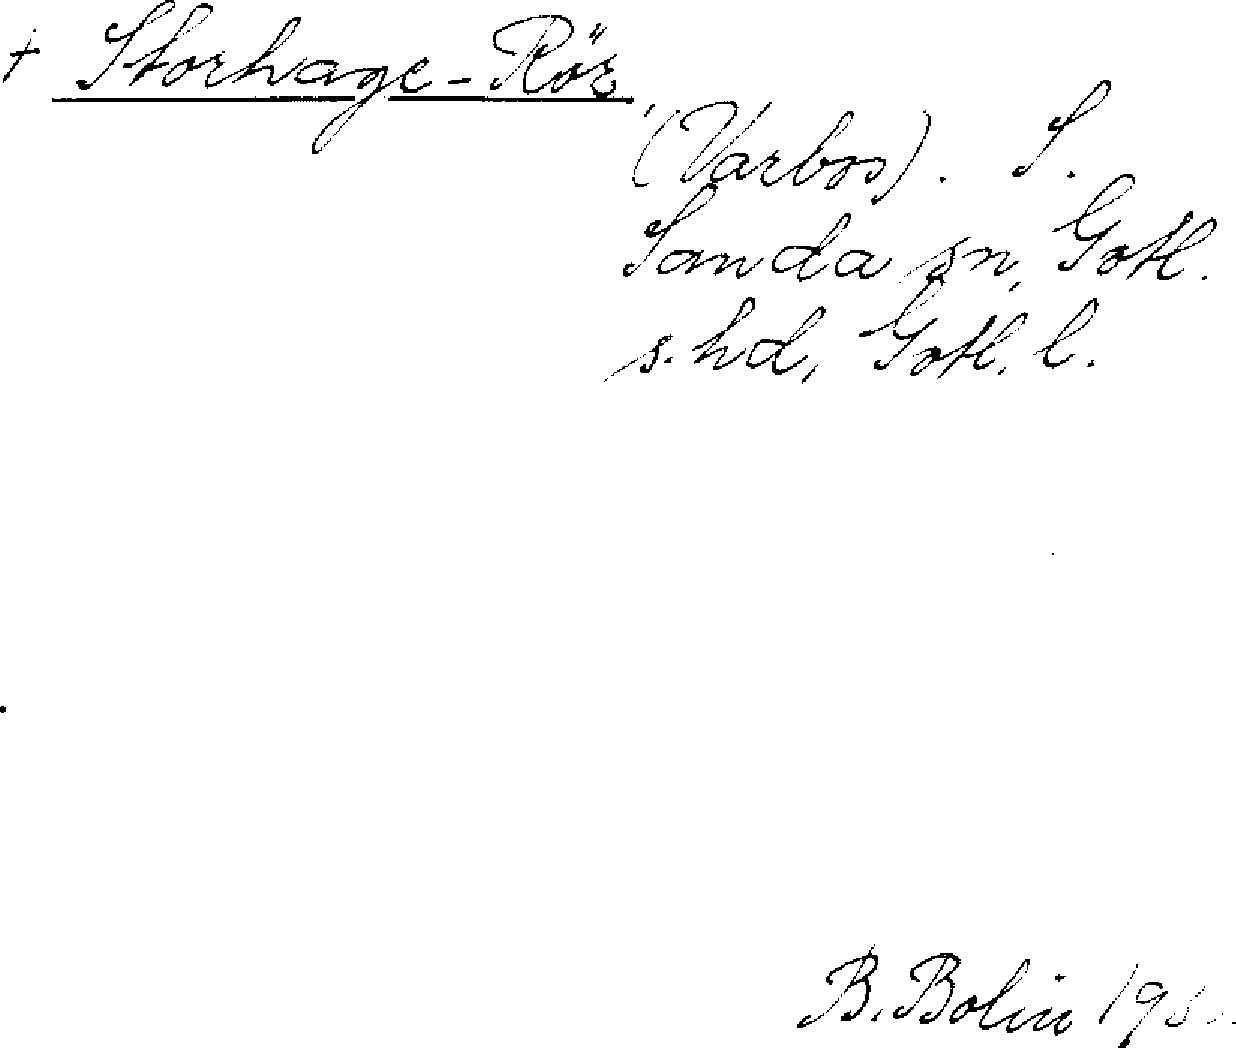 + Storhage-Rör
(Varbos). S.
Sanda sn, Gotl.
s. hd, Gotl. l.
B. Bolin